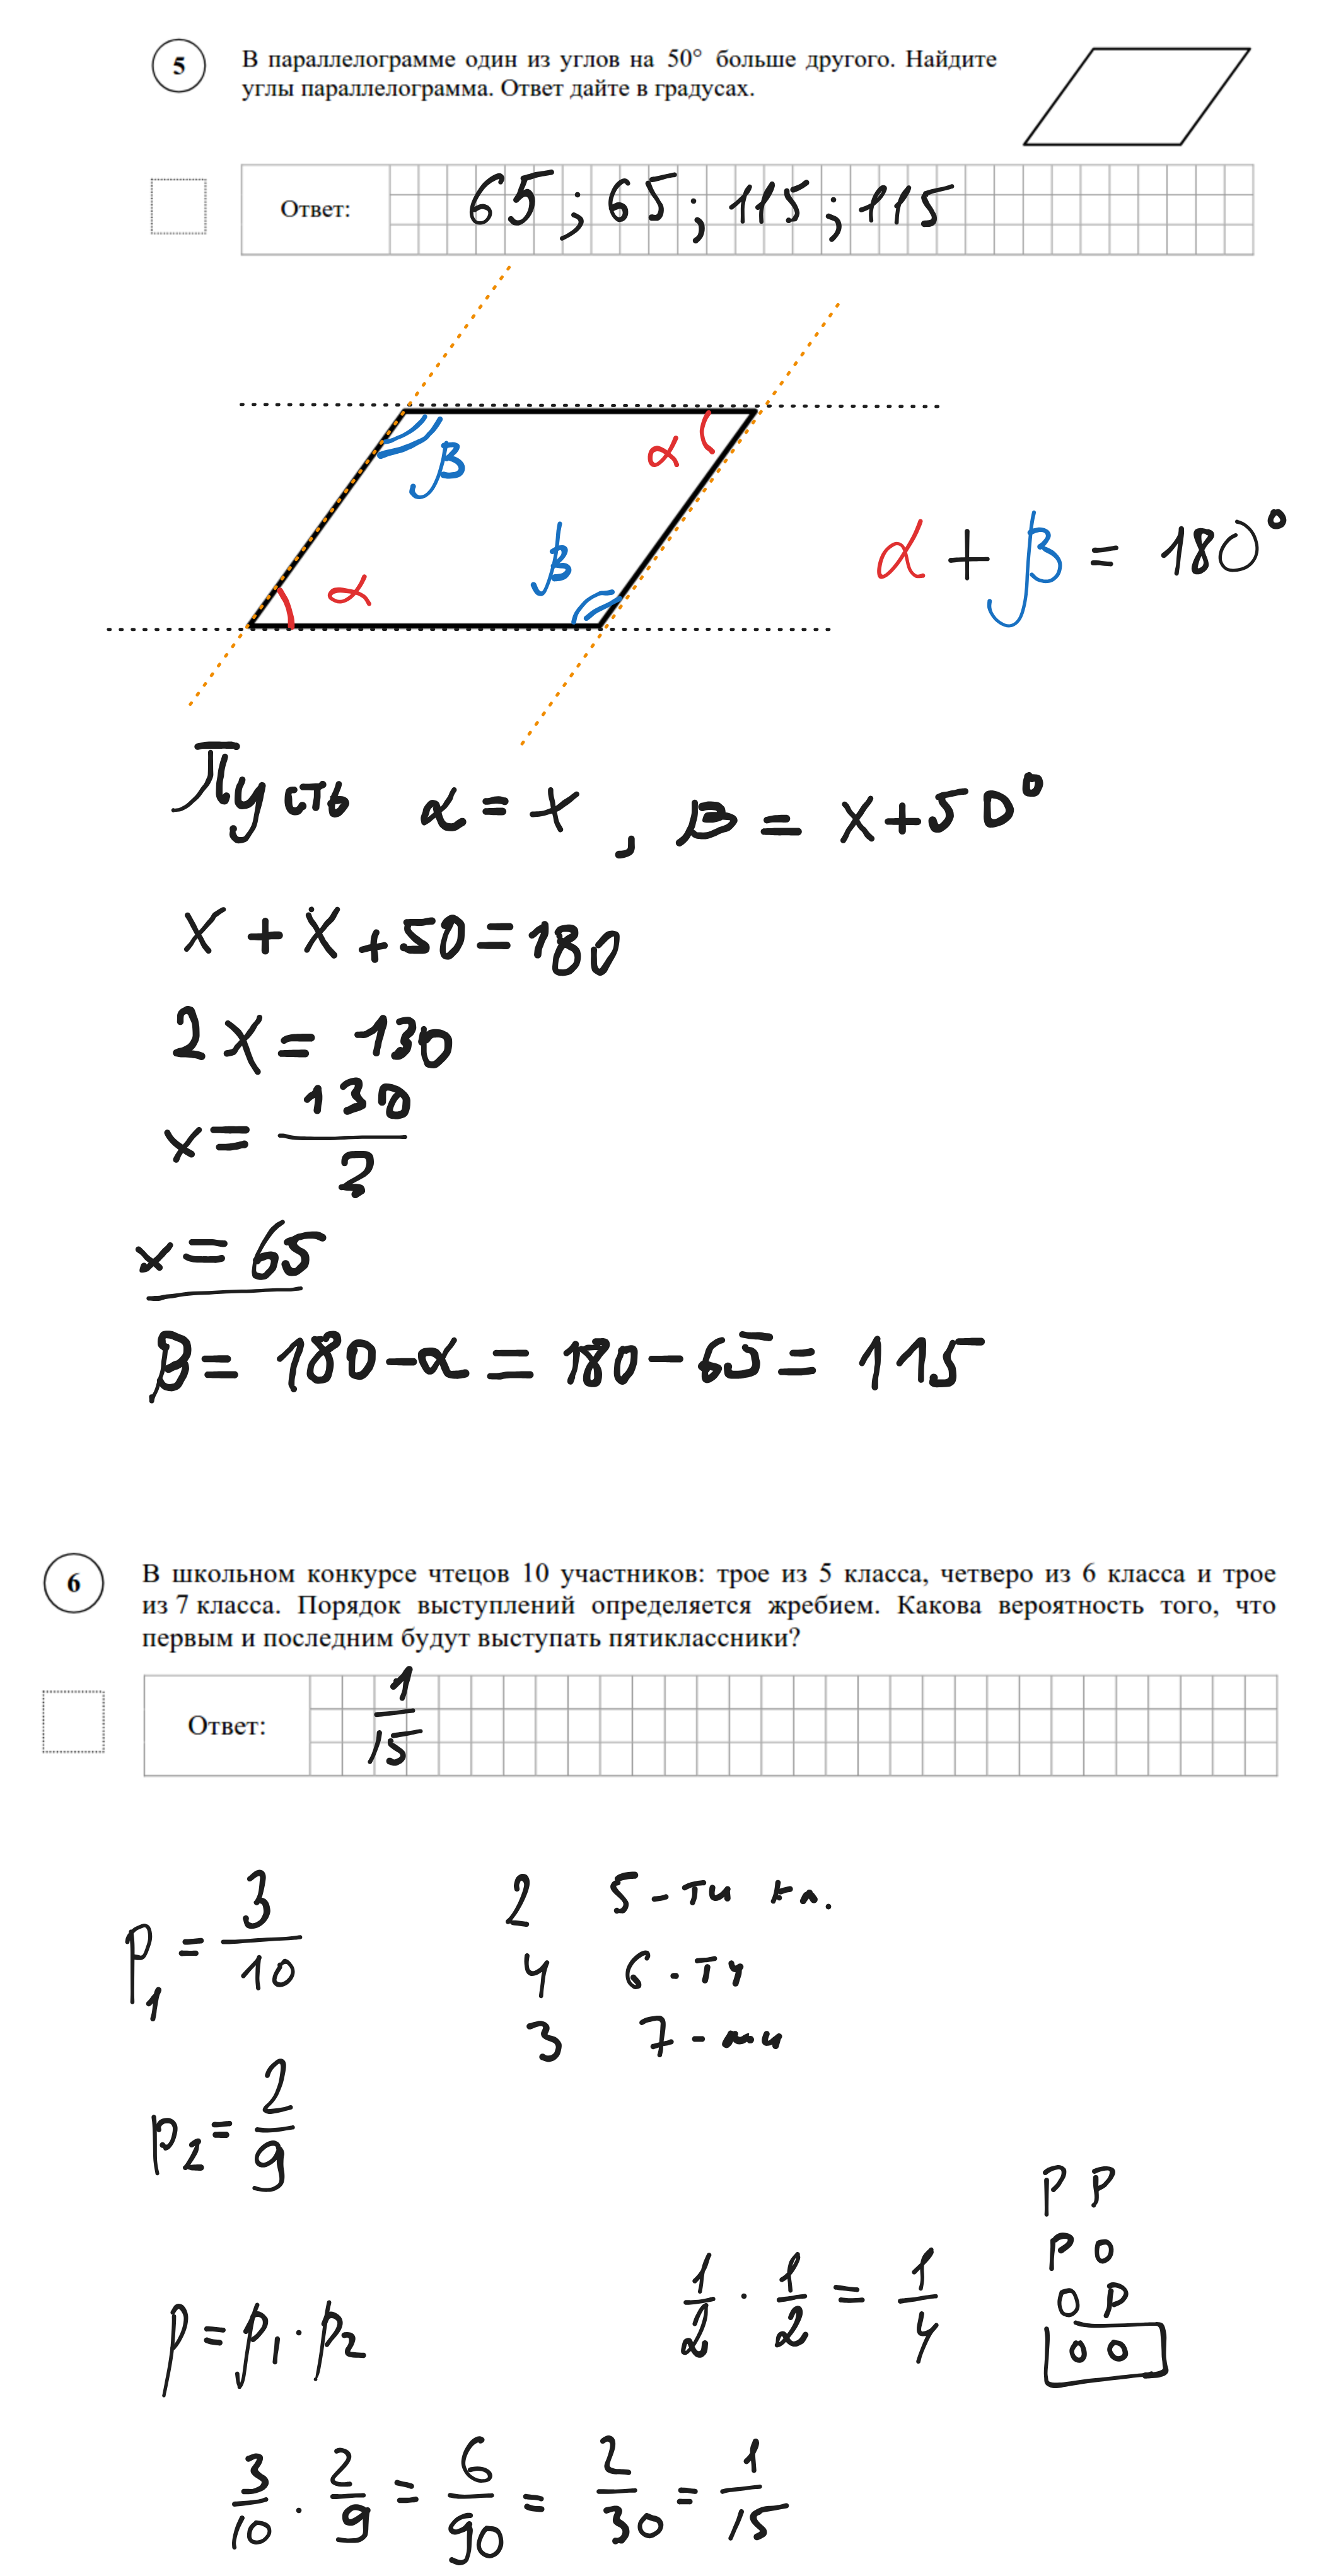 5
В параллелограмме один из углов на 50° больше другого. Найдите
углы параллелограмма. Ответ дайте в градусах.
Ответ: 65 ; 65 ; 115 ; 115
β
α
α
β
α + β = 180°
Пусть α = x , β = x + 50°
x + x + 50 = 180
2x = 130
x = 130/2
x = 65
β = 180 - α = 180 - 65 = 115
6
В школьном конкурсе чтецов 10 участников: трое из 5 класса, четверо из 6 класса и трое
из 7 класса. Порядок выступлений определяется жребием. Какова вероятность того, что
первым и последним будут выступать пятиклассники?
Ответ: 1/15
p₁ = 3/10
2 5-ти кл.
4 6-ти
3 7-ми
p₂ = 2/9
P P
P O
O P
O O
1/2 · 1/2 = 1/4
p = p₁ · p₂
3/10 · 2/9 = 6/90 = 2/30 = 1/15